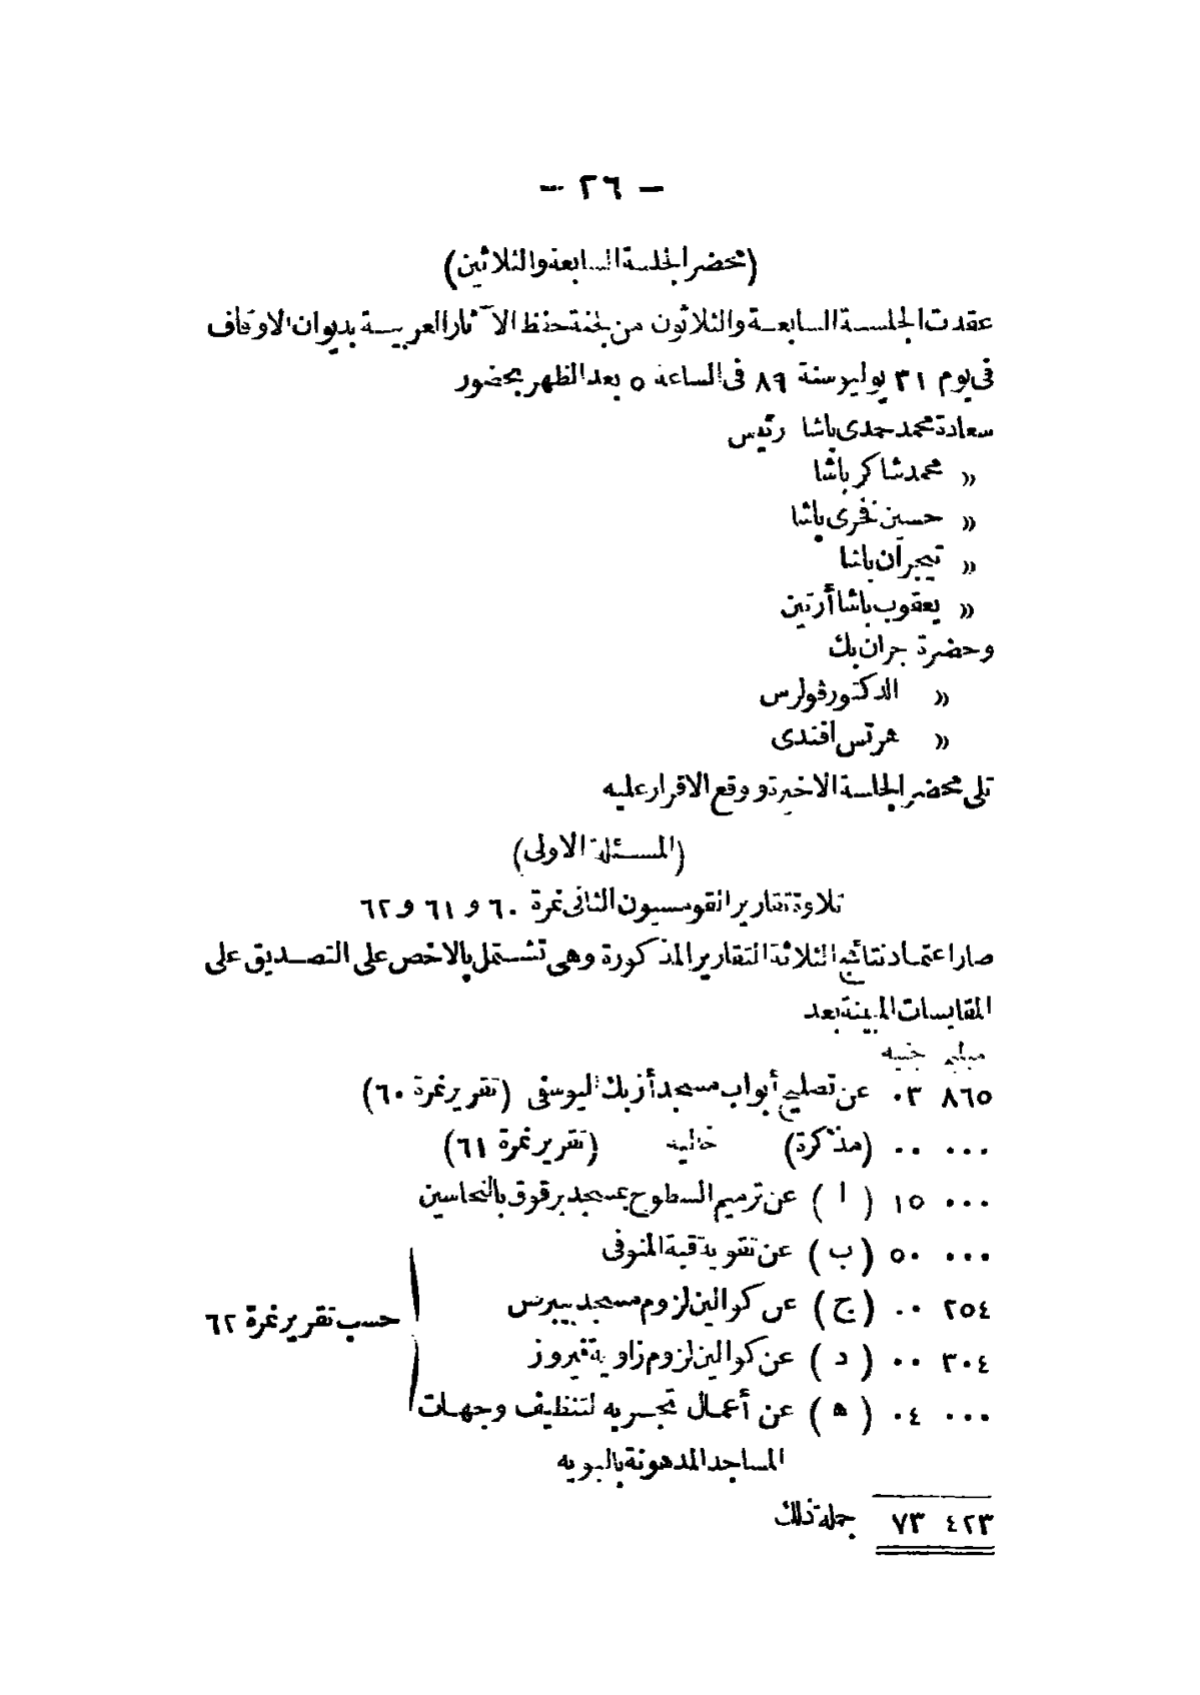 — ٢٦ —
(محضر الجلسة السابعة والثلاثين)
عقدت الجلسة السابعة والثلاثون من لجنة حفظ الآثار العربية بديوان الاوقاف
فى يوم ٣١ يوليو سنة ٨٩ فى الساعة ٥ بعد الظهر بحضور
سعادة محمد حمدى باشا رئيس
» محمد شاكر باشا
» حسين فخرى باشا
» تيجران باشا
» يعقوب باشا أرتين
وحضرة جران بك
» الدكتور ڤولرس
» هرتس افندى
تلى محضر الجلسة الاخيرة ووقع الاقرار عليه
(المسئلة الاولى)
تلاوة تقارير القومسيون الثانى نمرة ٦٠ و ٦١ و ٦٢
صار اعتماد نتائج الثلاثة التقارير المذكورة وهى تشتمل بالاخص على التصديق على
المقايسات المبينة بعد
مليم جنيه
٨٦٥ ٠٣ عن تصليح أبواب مسجد أزبك اليوسفى (تقرير نمرة ٦٠)
٠٠٠ ٠٠ (مذكرة) خاليه (تقرير نمرة ٦١)
٠٠٠ ١٥ (ا) عن ترميم السطوح بمسجد برقوق بالنحاسين
٠٠٠ ٥٠ (ب) عن تقوية قبة المنوفى
٢٥٤ ٠٠ (ج) عن كوالين لزوم مسجد بيبرس
حسب تقرير نمرة ٦٢
٣٠٤ ٠٠ (د) عن كوالين لزوم زاوية فيروز
٠٠٠ ٠٤ (ه) عن أعمال تجربه لتنظيف وجهات
المساجد المدهونة بالبويه
٤٢٣ ٧٣ جملة ذلك